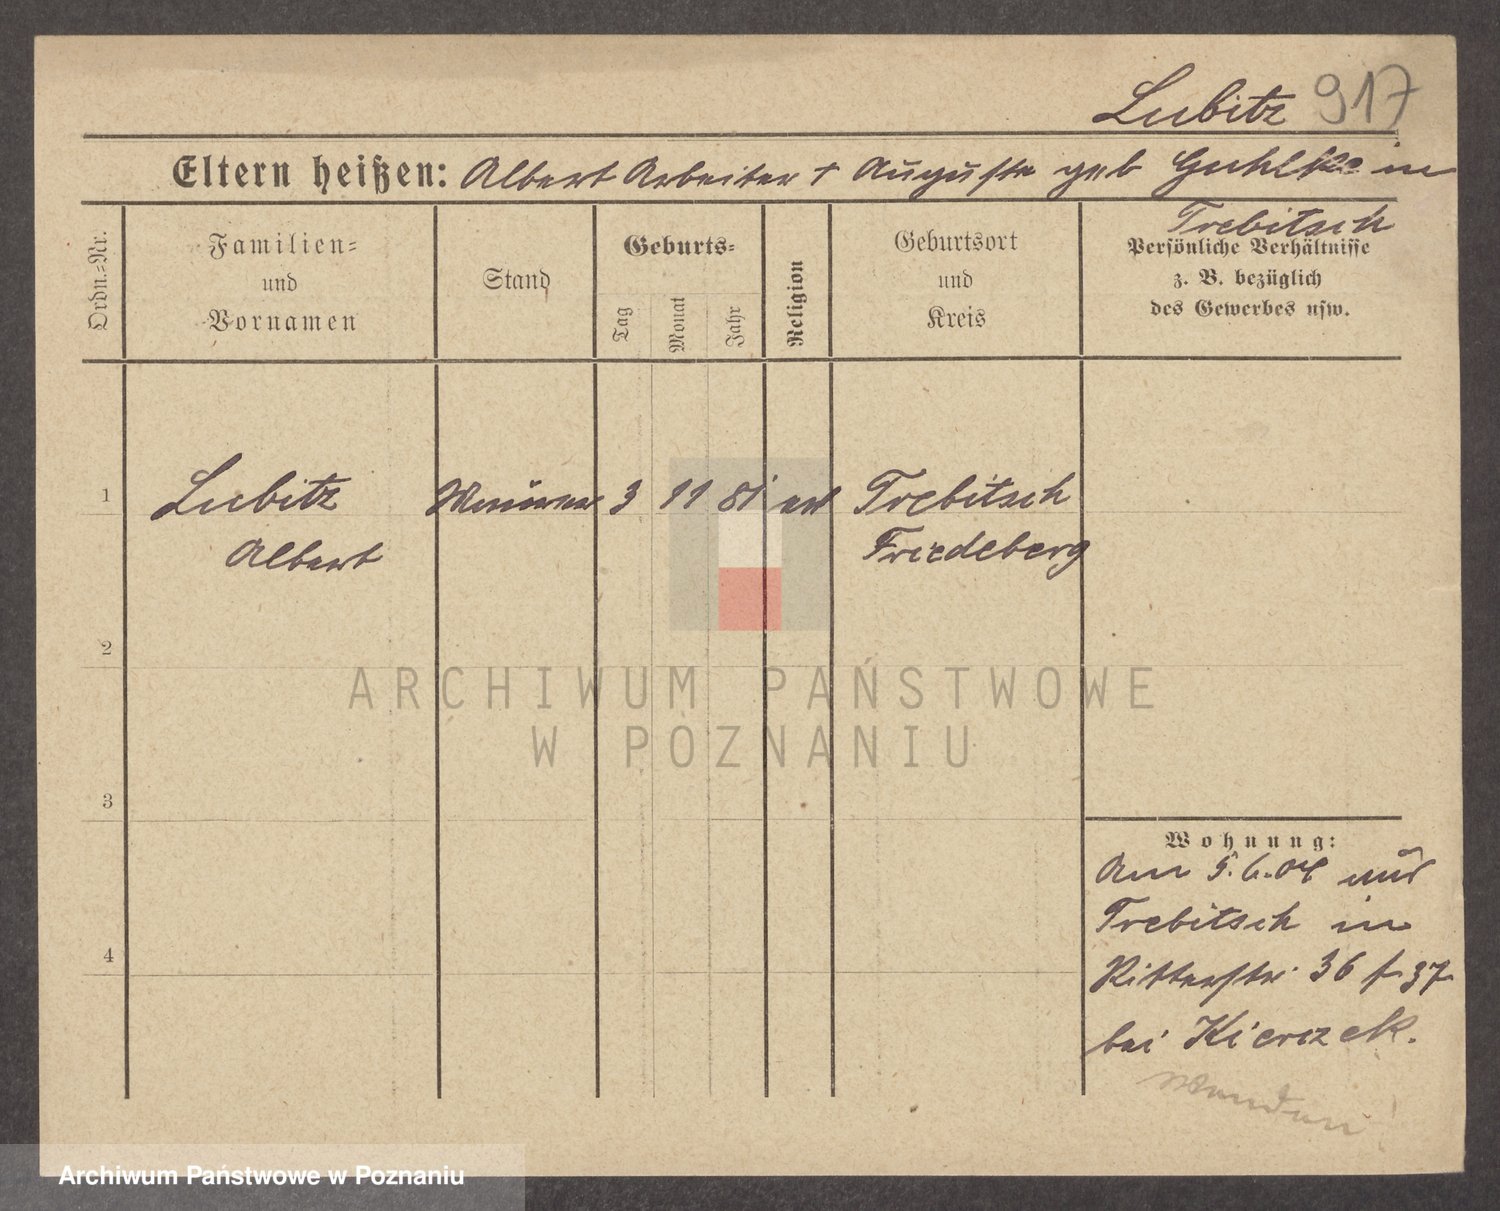 Lubitz 917
Eltern heißen: Albert Arbeiter † Auguste geb Guhlke in
Trebitsch
Ordn.=Nr.
Familien=
und
Vornamen
Stand
Geburts=
Tag
Monat
Jahr
Religion
Geburtsort
und
Kreis
Persönliche Verhältnisse
z. B. bezüglich
des Gewerbes usw.
1
Lubitz
Albert
3
11
81
Trebitsch
Friedeberg
2
3
4
Wohnung:
Am 5.6.04 aus
Trebitsch in
Ritterstr 36 f. 37
bei Kierzek.
ARCHIWUM PAŃSTWOWE
W POZNANIU
Archiwum Państwowe w Poznaniu